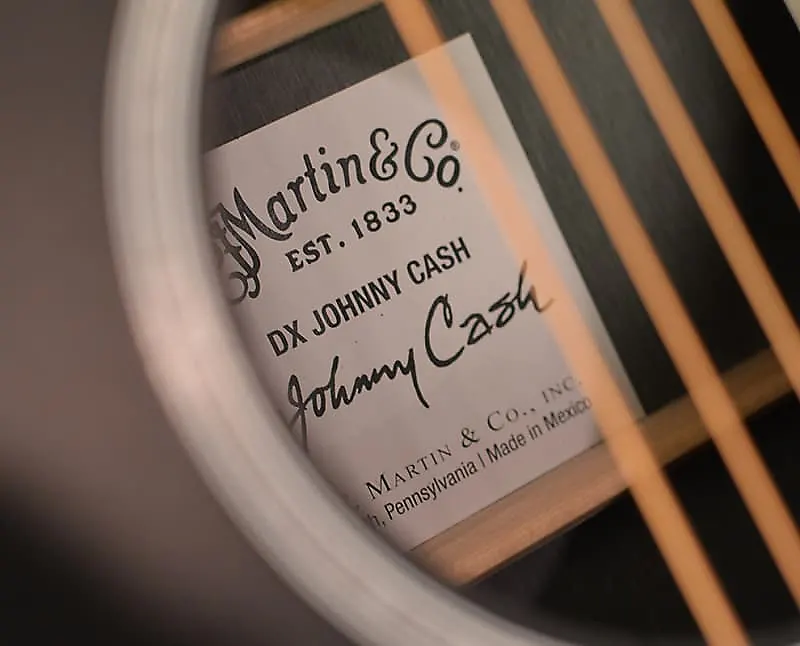 Martin & Co.®
EST. 1833
DX JOHNNY CASH
Johnny Cash
Martin & Co., Inc.
Pennsylvania | Made in Mexico